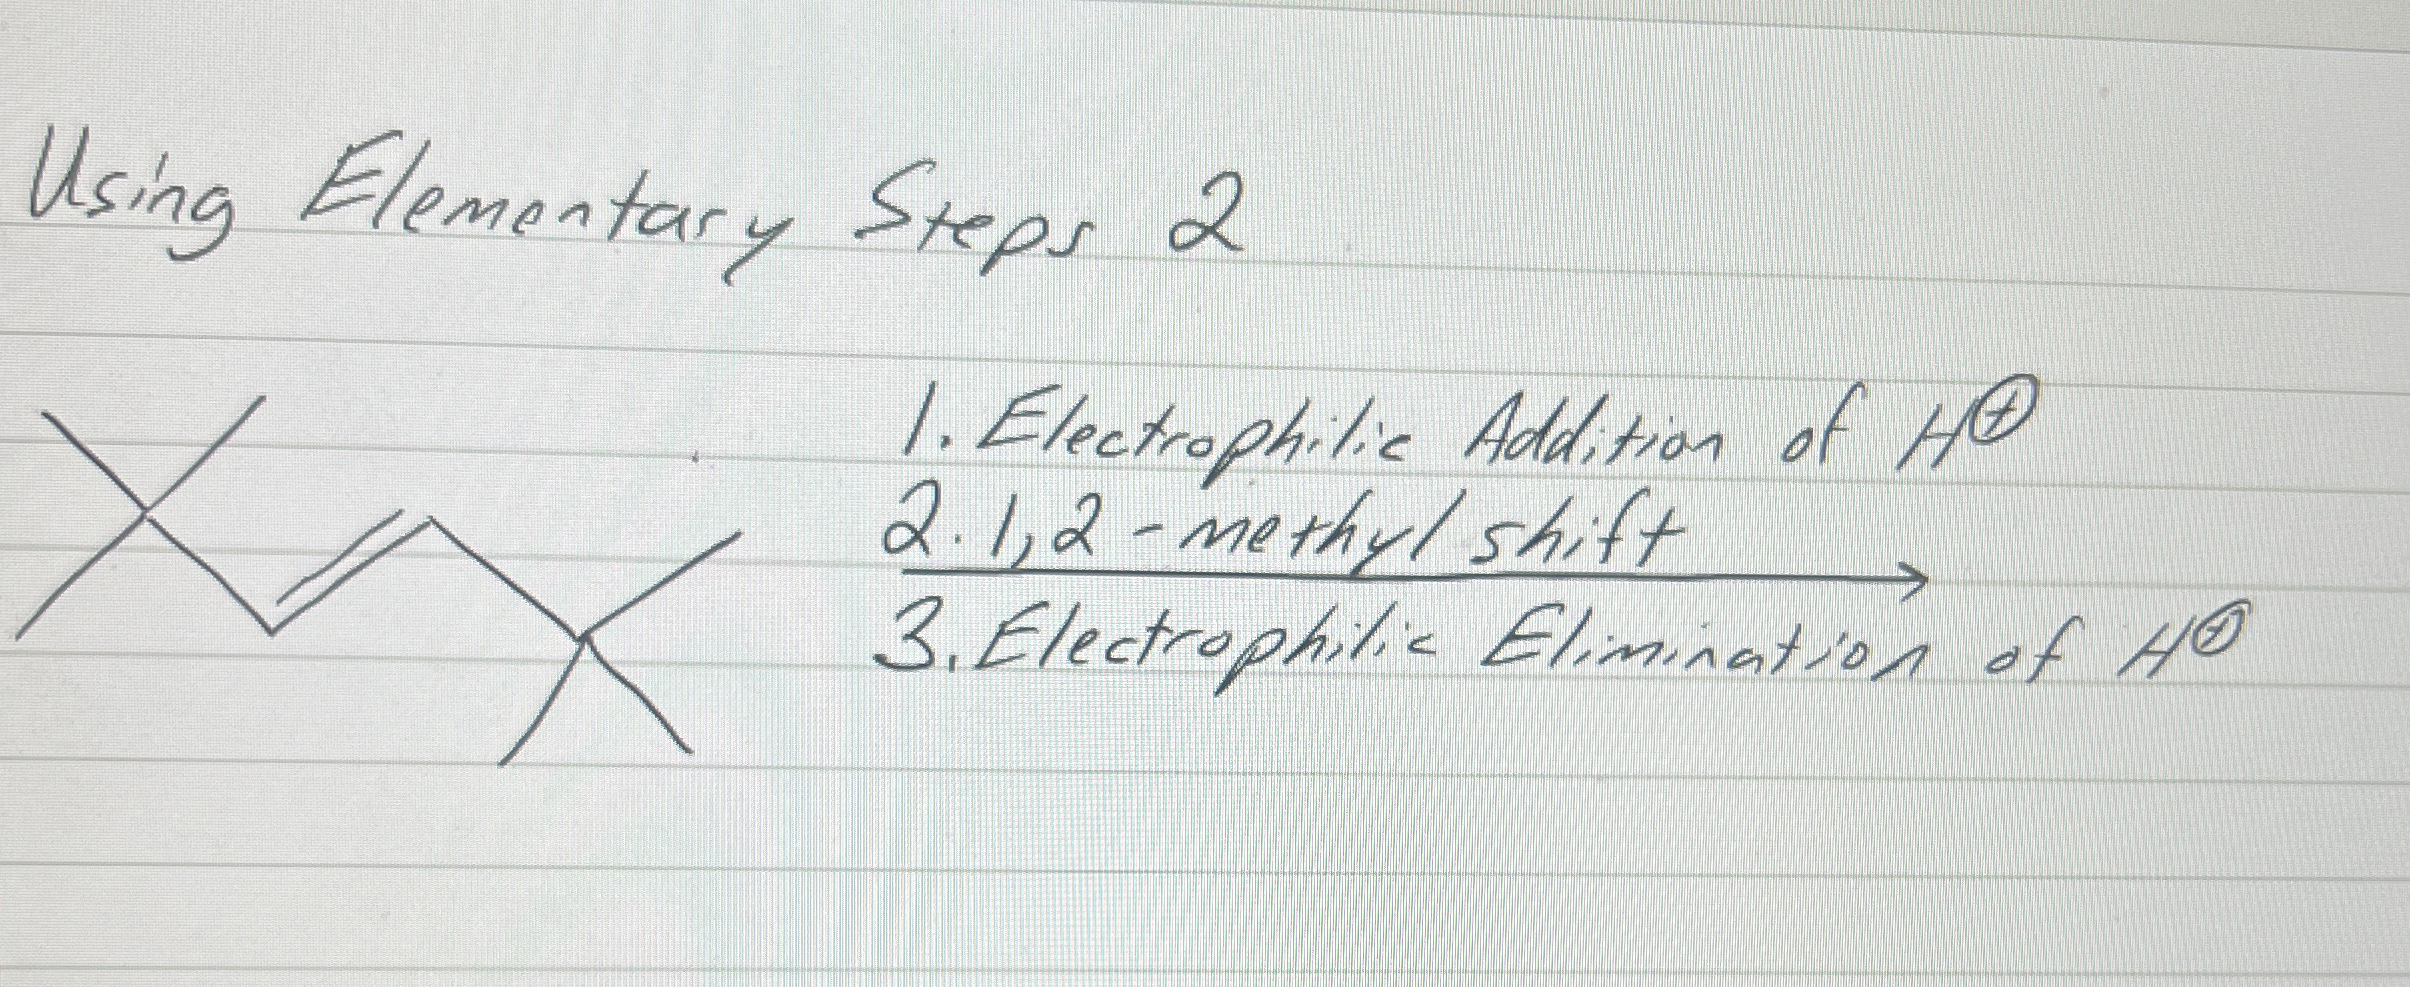 Using Elementary Steps 2
1. Electrophilic Addition of H⊕
2. 1,2-methyl shift
3. Electrophilic Elimination of H⊕